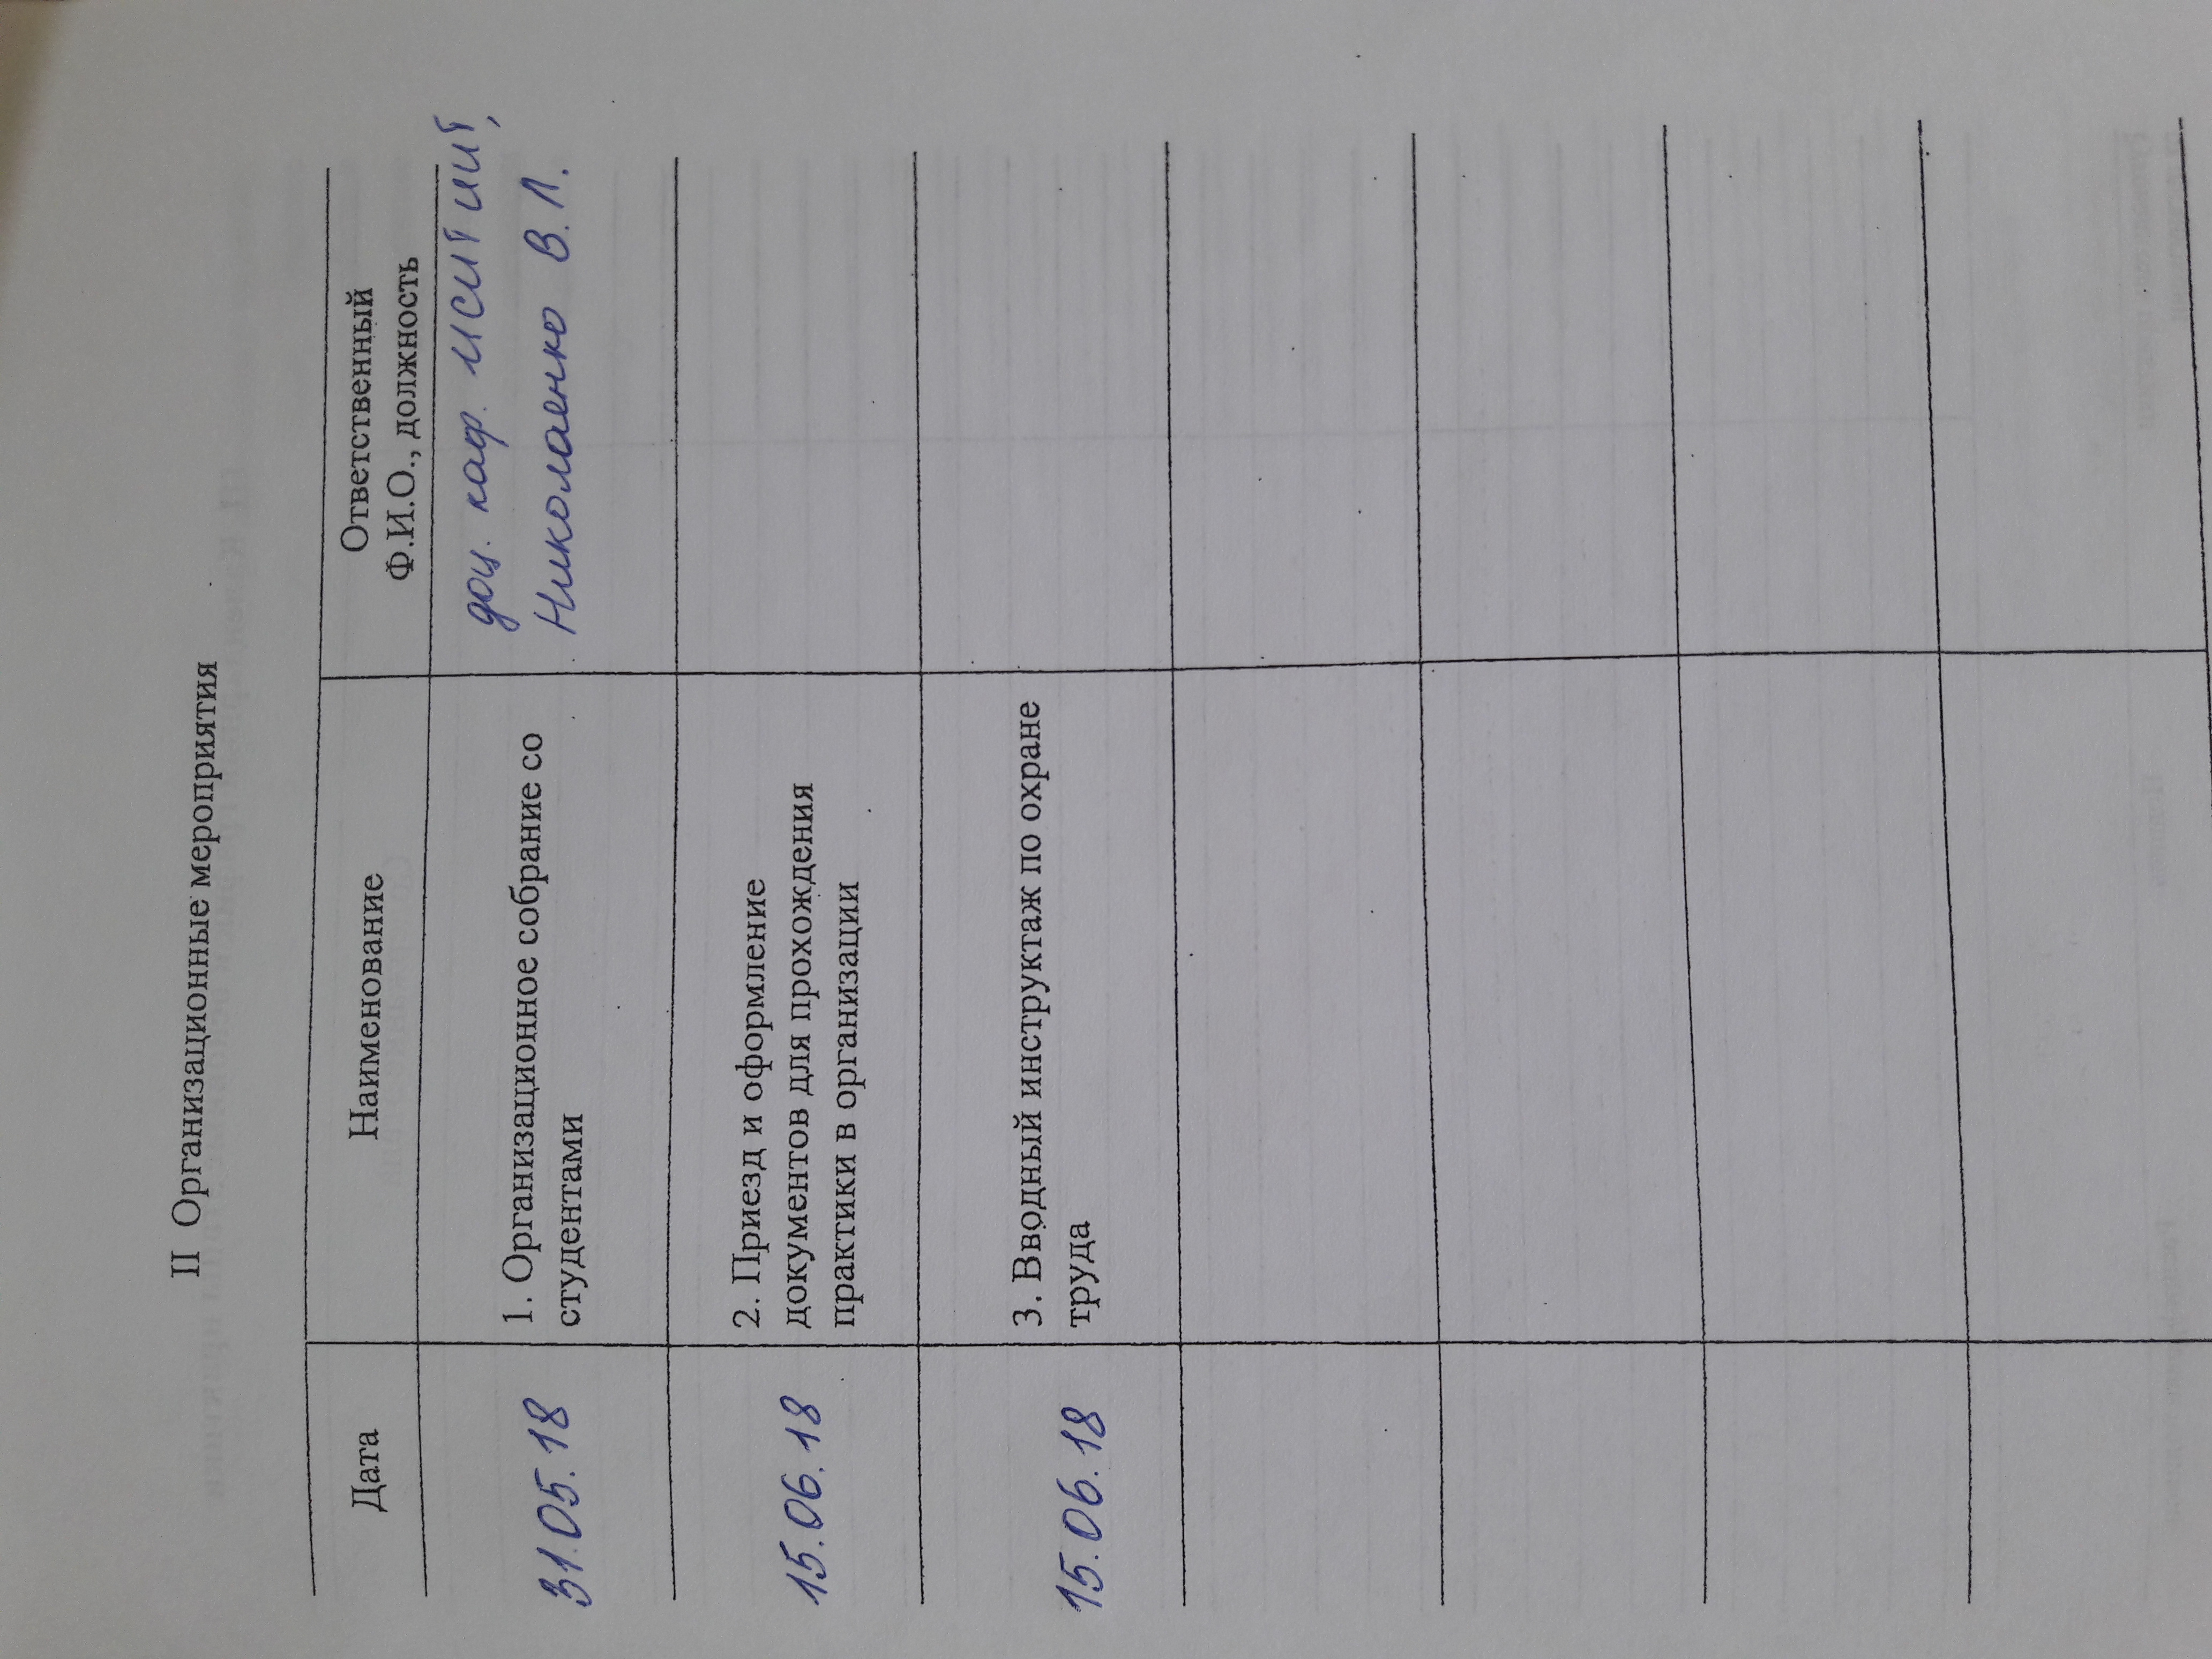 II Организационные мероприятия
Дата
Наименование
Ответственный
Ф.И.О., должность
31.05.18
1. Организационное собрание со
студентами
доц. каф. ИСИТИИТ,
Николаенко В.Л.
15.06.18
2. Приезд и оформление
документов для прохождения
практики в организации
15.06.18
3. Вводный инструктаж по охране
труда